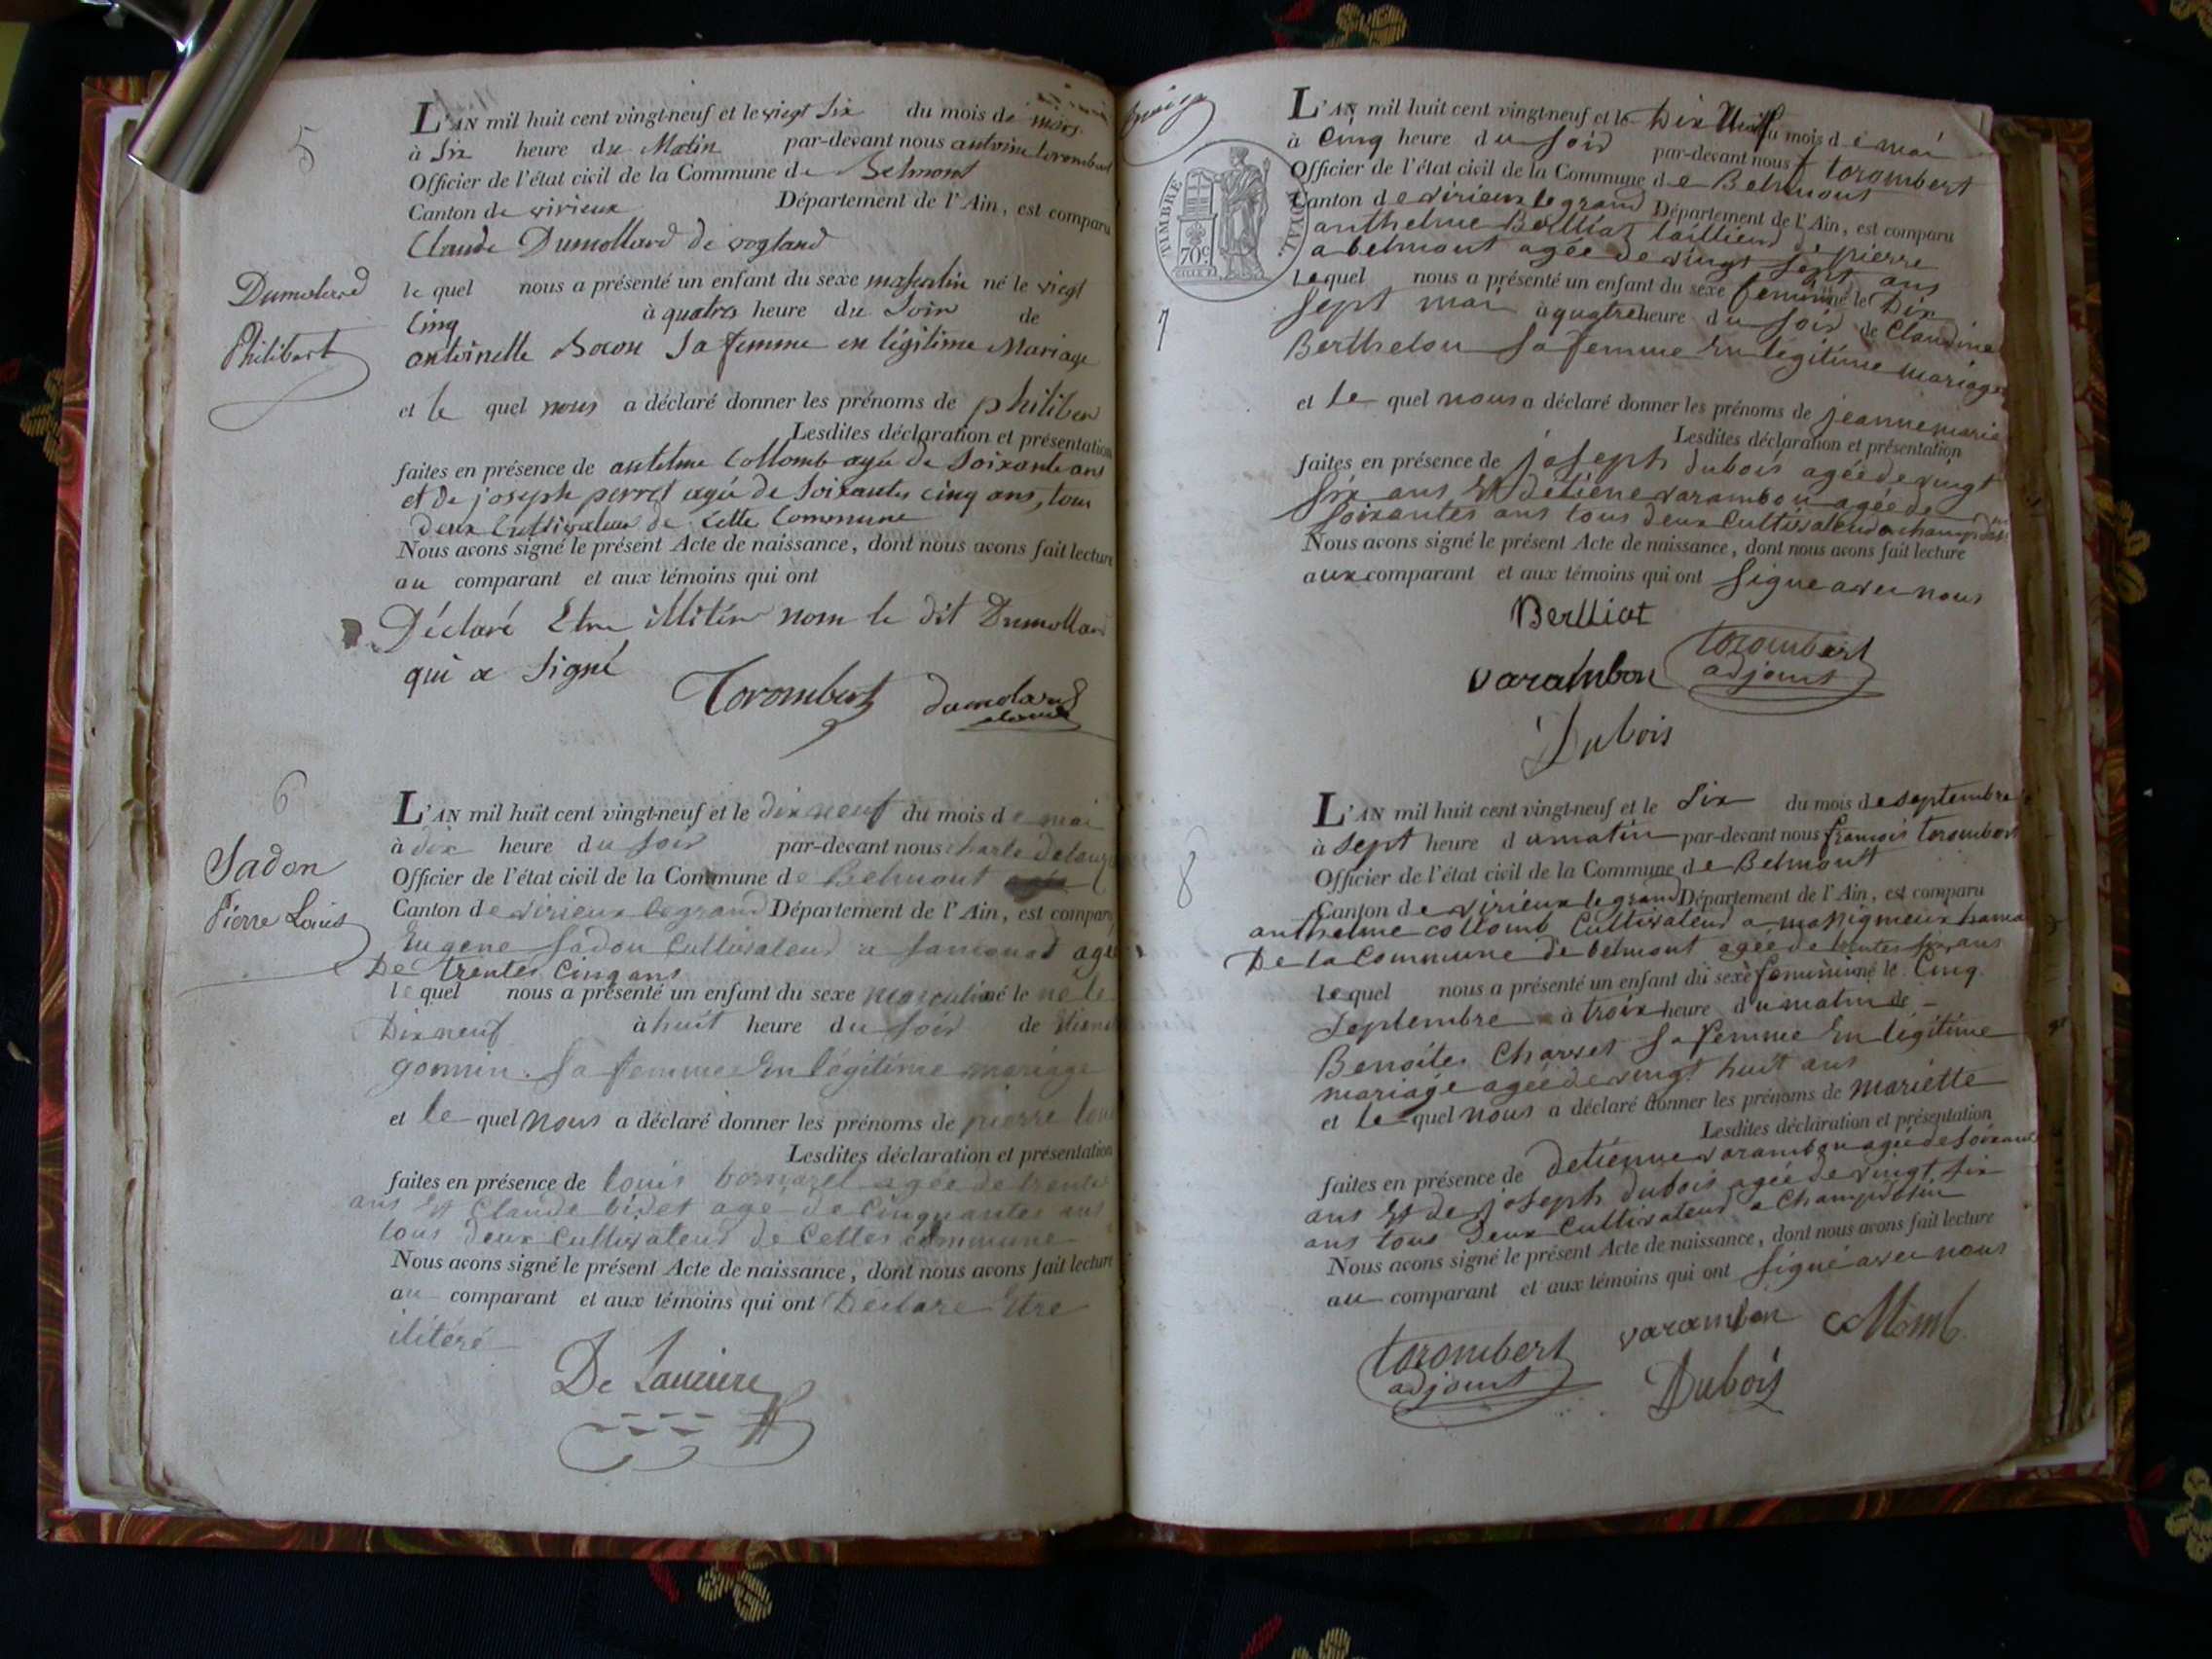 5
L'AN mil huit cent vingt-neuf et le vingt six du mois de mars
à Six heure du Matin par-devant nous antoine torombert
Officier de l'état civil de la Commune de Belmont
Canton de virieux Département de l'Ain, est comparu
Claude Dumollard de vogland
Dumolard
Philibert
le quel nous a présenté un enfant du sexe né le vingt
Cinq à quatres heure du Soir de
antoinelle Bocon Sa femme en légitime Mariage
et le quel nous a déclaré donner les prénoms de philiber
Lesdites déclaration et présentation
faites en présence de antelme Collomb agé de Soixante ans
et de joseph perret agé de Soixantes cinq ans, tous
deux Cultivateur de cette Commune
Nous avons signé le présent Acte de naissance, dont nous avons fait lecture
au comparant et aux témoins qui ont
Déclaré Etre illitér nom le dit Dumollard
qui a Signé
Torombert dumolard
claude
6
Sadon
Pierre Louis
L'AN mil huit cent vingt-neuf et le dix neuf du mois de mai
à dix heure du soir par-devant nous charle
Officier de l'état civil de la Commune de Belmont
Canton de virieux legrand Département de l'Ain, est comparu
Eugene Sadon Cultivateur a agé
De trentes Cinq ans
le quel nous a présenté un enfant du sexe masculin né le ne le
Dix neuf à huit heure du soir de
gonnin Sa femme En légitime mariage
et le quel nous a déclaré donner les prénoms de pierre loui
Lesdites déclaration et présentation
faites en présence de louis bornarel agée de trente
ans Et Claude bidet agé de Cinquantes ans
tous deux Cultivateur de Cettes commune
Nous avons signé le présent Acte de naissance, dont nous avons fait lecture
au comparant et aux témoins qui ont Déclare Etre
ilitéré
De Lauziere
TIMBRE ROYAL
70 c
7
L'AN mil huit cent vingt-neuf et le Dix Huit du mois de mai
à Cinq heure du soir par-devant nous f torombert
Officier de l'état civil de la Commune de Belmont
Canton de virieux legrand Département de l'Ain, est comparu
anthelme Berlliat taillieur de pierre
a belmont agée de vingt sept ans
Lequel nous a présenté un enfant du sexe feminin né le Dix
sept mai à quatre heure du soir de Claudine
Berthelon Sa femme En légitime mariage
et le quel nous a déclaré donner les prénoms de jeanne marie
Lesdites déclaration et présentation
faites en présence de joseph dubois agée de vingt
six ans Et detiéne varambon agée de
soixantes ans tous deux Cultivateur a
Nous avons signé le présent Acte de naissance, dont nous avons fait lecture
aux comparant et aux témoins qui ont signe avec nous
Berlliat
varambon torombert
adjoint
Dubois
8
L'AN mil huit cent vingt-neuf et le Six du mois de septembre
à sept heure du matin par-devant nous françois torombert
Officier de l'état civil de la Commune de Belmont
Canton de virieux legrand Département de l'Ain, est comparu
anthelme collomb Cultivateur a massigneux hamau
De la Commune de belmont agée de trentes six ans
Lequel nous a présenté un enfant du sexe feminin né le Cinq
Septembre à troix heure du matin de
Benoite Charvet Sa femme En légitime
mariage agée de vingt huit ans
et le quel nous a déclaré donner les prénoms de mariette
Lesdites déclaration et présentation
faites en présence de detiénne varambon agée de soixante
ans Et de joseph dubois agée de vingt six
ans tous deux Cultivateur a Champdosin
Nous avons signé le présent Acte de naissance, dont nous avons fait lecture
au comparant et aux témoins qui ont signé avec nous
torombert varambon collomb
adjoint Dubois